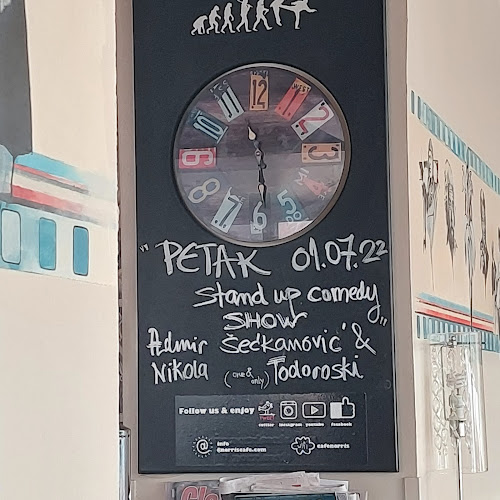 12
11
2
3
4
5
6
7
8
9
10
11
"PETAK 01.07.22
Stand up comedy
SHOW"
Admir Šećkanović &
Nikola (one & only) Todoroski
Follow us & enjoy
twitter instagram youtube facebook
info
@norriscafe.com
cafenorris